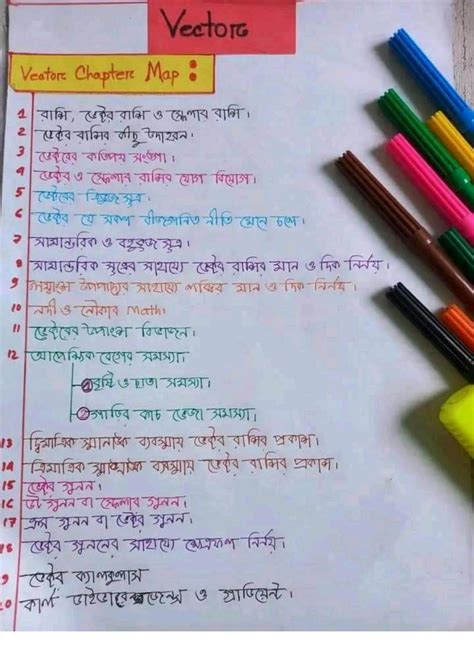 Vector
Vector Chapter Map :
1 রাশি, ভেক্টর রাশি ও স্কেলার রাশি।
2 ভেক্টর রাশির কিছু উদাহরন।
3 ভেক্টরের কতিপয় সংজ্ঞা।
4 ভেক্টর ও স্কেলার রাশির যোগ বিয়োগ।
5 ভেক্টরের ত্রিভুজ সূত্র।
6 ভেক্টর যে সকল বীজগানিতিক নীতি মেনে চলে।
7 সামান্তরিক ও বহুভুজ সূত্র।
8 সামান্তরিক সূত্রের সাহায্যে ভেক্টর রাশির মান ও দিক নির্নয়।
9 লম্বাংশ উপপাদ্যের সাহায্যে শক্তির মান ও দিক নির্নয়।
10 নদী ও নৌকার Math।
11 ভেক্টরের উপাংশ বিভাজন।
12 আপেক্ষিক বেগের সমস্যা
বৃষ্টি ও ছাতা সমস্যা।
গাড়ির কাচ ভেজা সমস্যা।
13 দ্বিমাত্রিক স্থানাঙ্ক ব্যবস্থায় ভেক্টর রাশির প্রকাশ।
14 ত্রিমাত্রিক স্থানাঙ্ক ব্যবস্থায় ভেক্টর রাশির প্রকাশ।
15 ভেক্টর গুনন।
16 ডট গুনন বা স্কেলার গুনন।
17 ক্রস গুনন বা ভেক্টর গুনন।
18 ভেক্টর গুননের সাহায্যে ক্ষেত্রফল নির্নয়।
9 ভেক্টর ক্যালকুলাস
0 কার্ল ডাইভারজেন্স ও গ্রাডিয়েন্ট।